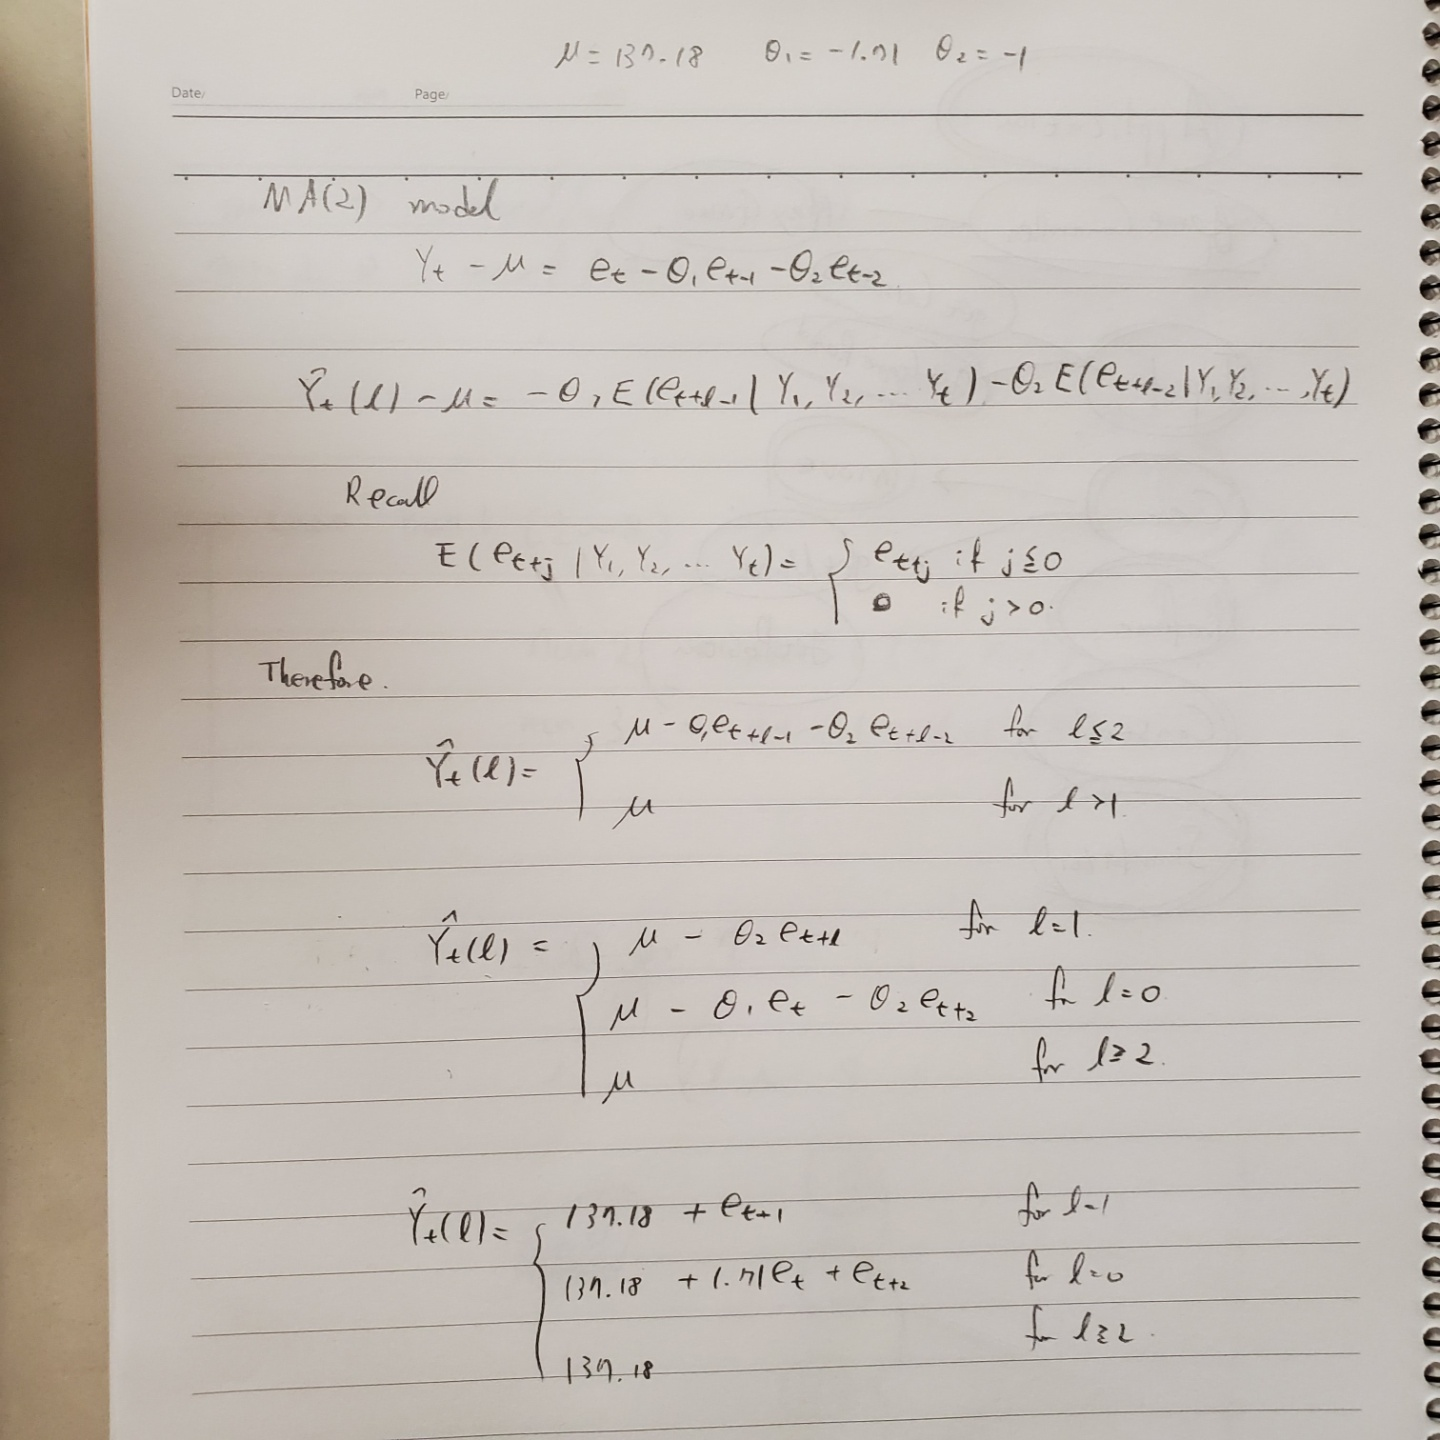 μ = 137.18 θ₁ = -1.71 θ₂ = -1
Date/ Page/
MA(2) model
Yₜ - μ = eₜ - θ₁eₜ₋₁ - θ₂eₜ₋₂
Ŷₜ(l) - μ = -θ₁E(eₜ₊ₗ₋₁ | Y₁, Y₂, ... Yₜ) - θ₂E(eₜ₊ₗ₋₂ | Y₁, Y₂, ..., Yₜ)
Recall
E(eₜ₊ⱼ | Y₁, Y₂, ... Yₜ) = { eₜ₊ⱼ if j ≦ 0
0 if j > 0.
Therefore.
μ - θ₁eₜ₊ₗ₋₁ - θ₂eₜ₊ₗ₋₂ for l ≦ 2
Ŷₜ(l) = {
μ for l > 1.
Ŷₜ(l) = { μ - θ₂eₜ₊ₗ for l = 1.
μ - θ₁eₜ - θ₂eₜ₊₂ for l = 0
μ for l ≧ 2.
Ŷₜ(l) = { 137.18 + eₜ₊₁ for l = 1
137.18 + 1.71eₜ + eₜ₊₂ for l = 0
for l ≧ 2.
137.18